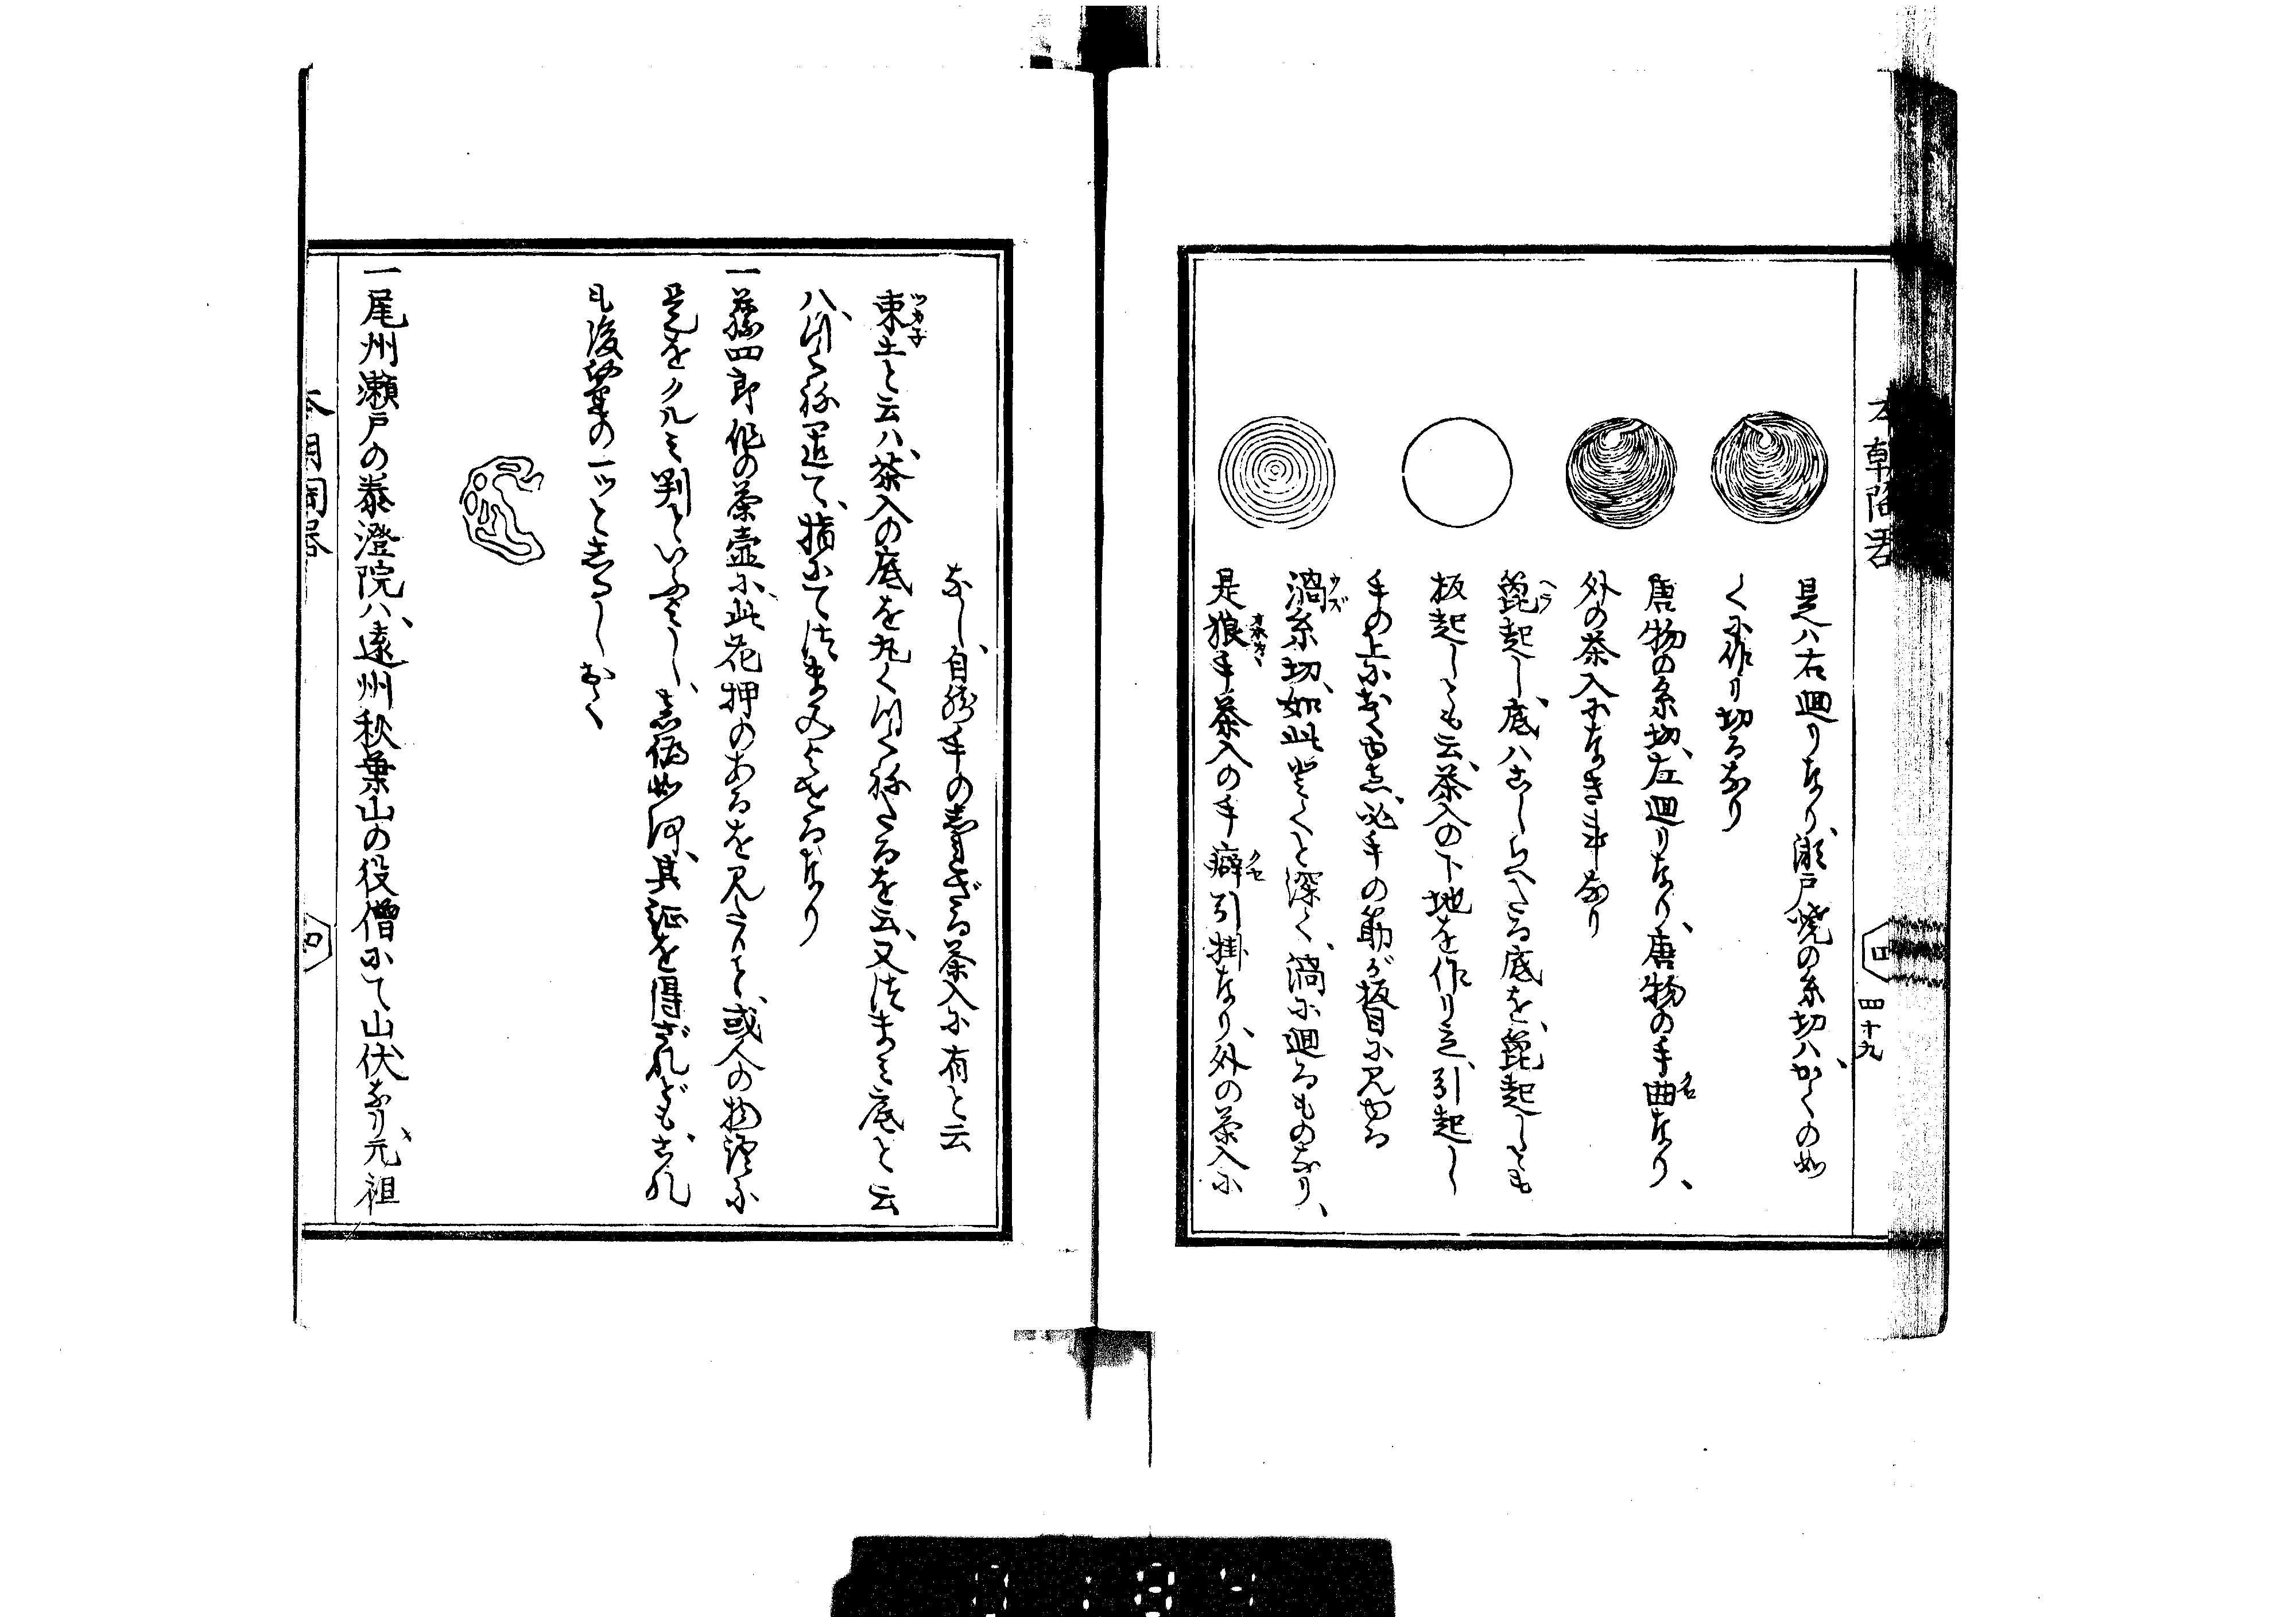 四十九
是ハ右廻りなり、瀬戸焼の糸切ハ、かくの如
くに作り切るなり
唐物の糸切、左廻りなり、唐物の手曲なり、
外の茶入になき事なり
箆起し、底ハこしらへたる底を、箆起しとも
板起しとも云、茶入の下地を作り立、引起し
手の上におくゆゑ、必手の筋が板目に見ゆる
渦糸切、如此 と深く、渦に廻るものなり、
是狼手茶入の手癖引掛なり、外の茶入に
なし、自然手の
ざる茶入に有と云
ツカ子
束土と云ハ、茶入の底を丸くつくねたるを云、又つまみ底と云
ハ、つくね置て、指にてつまみよせるなり
一藤四郎作の茶壷に、此花押のあるを見たりと、或人の物語に
是をクルミ判といふよし、真偽如何、其証を得ざれども、これ
も後勘の一ツとしるしおく
一尾州瀬戸の泰澄院ハ、遠州秋葉山の役僧にて山伏なり、元祖